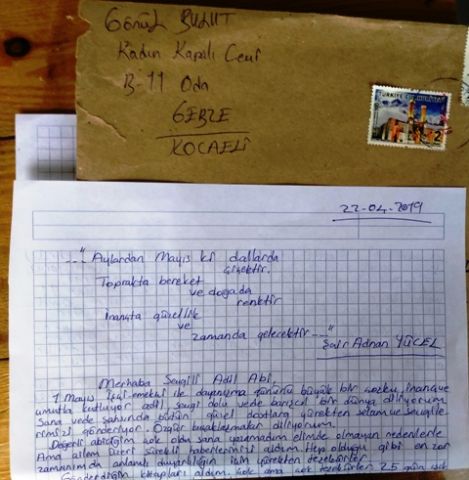 Gönül BULUT
Kadın Kapalı Cezi
B-11 Oda
GEBZE
KOCAELİ
TÜRKİYE
2
22-04-2019
---" Aylardan Mayıs ki dallarda
çiçektir.
Toprakta bereket
ve doğada
renktir
İnançta güzellik
ve
zamanda gelecektir---"
Şair Adnan YÜCEL
Merhaba Sevgili Adil Abi,
1 Mayıs işçi-emekçi ile dayanışma gününü büyük bir coşku, inanç ve
umutla kutluyor adil, sevgi dolu ve de barışcıl bir dünya diliyorum.
Sana ve de şahsında bütün güzel dostlara yürekten selam ve sevgile-
rimizi gönderiyor. Özgür kucaklaşmalar diliyorum.
Değerli abiciğim çok oldu sana yazamadım elimde olmayan nedenlerle
Ama ailem üzeri sürekli haberlerinizi aldım. Hep olduğu gibi en zor
zamanımda anlamlı duyarlılığın için yürekten teşekkürler.
Gönderdiğin kitapları aldım. çok ama çok teşekkürler 2.5 gün